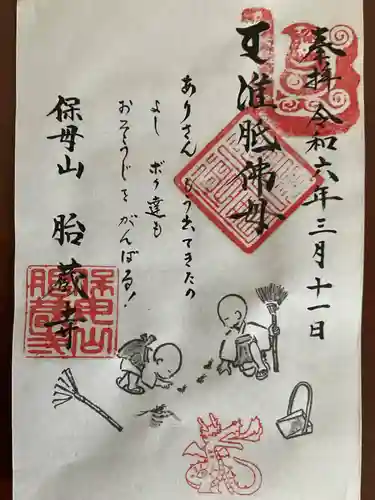 奉拝 令和六年三月十一日
准胝佛母
ありさん もう出てきたの
よし ボク達も
おそうじをがんばる!
保母山 胎蔵寺
保母山
胎蔵寺